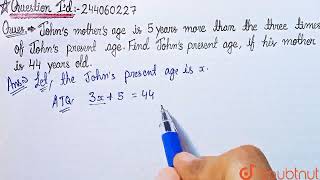 Question Id:- 244060227
Ques.⇒ John's mother's age is 5 years more than the three times
of John's present age. Find John's present age, if his mother
is 44 years old.
Ans⇒ Let, the John's present age is x.
ATQ: 3x + 5 = 44
doubtnut